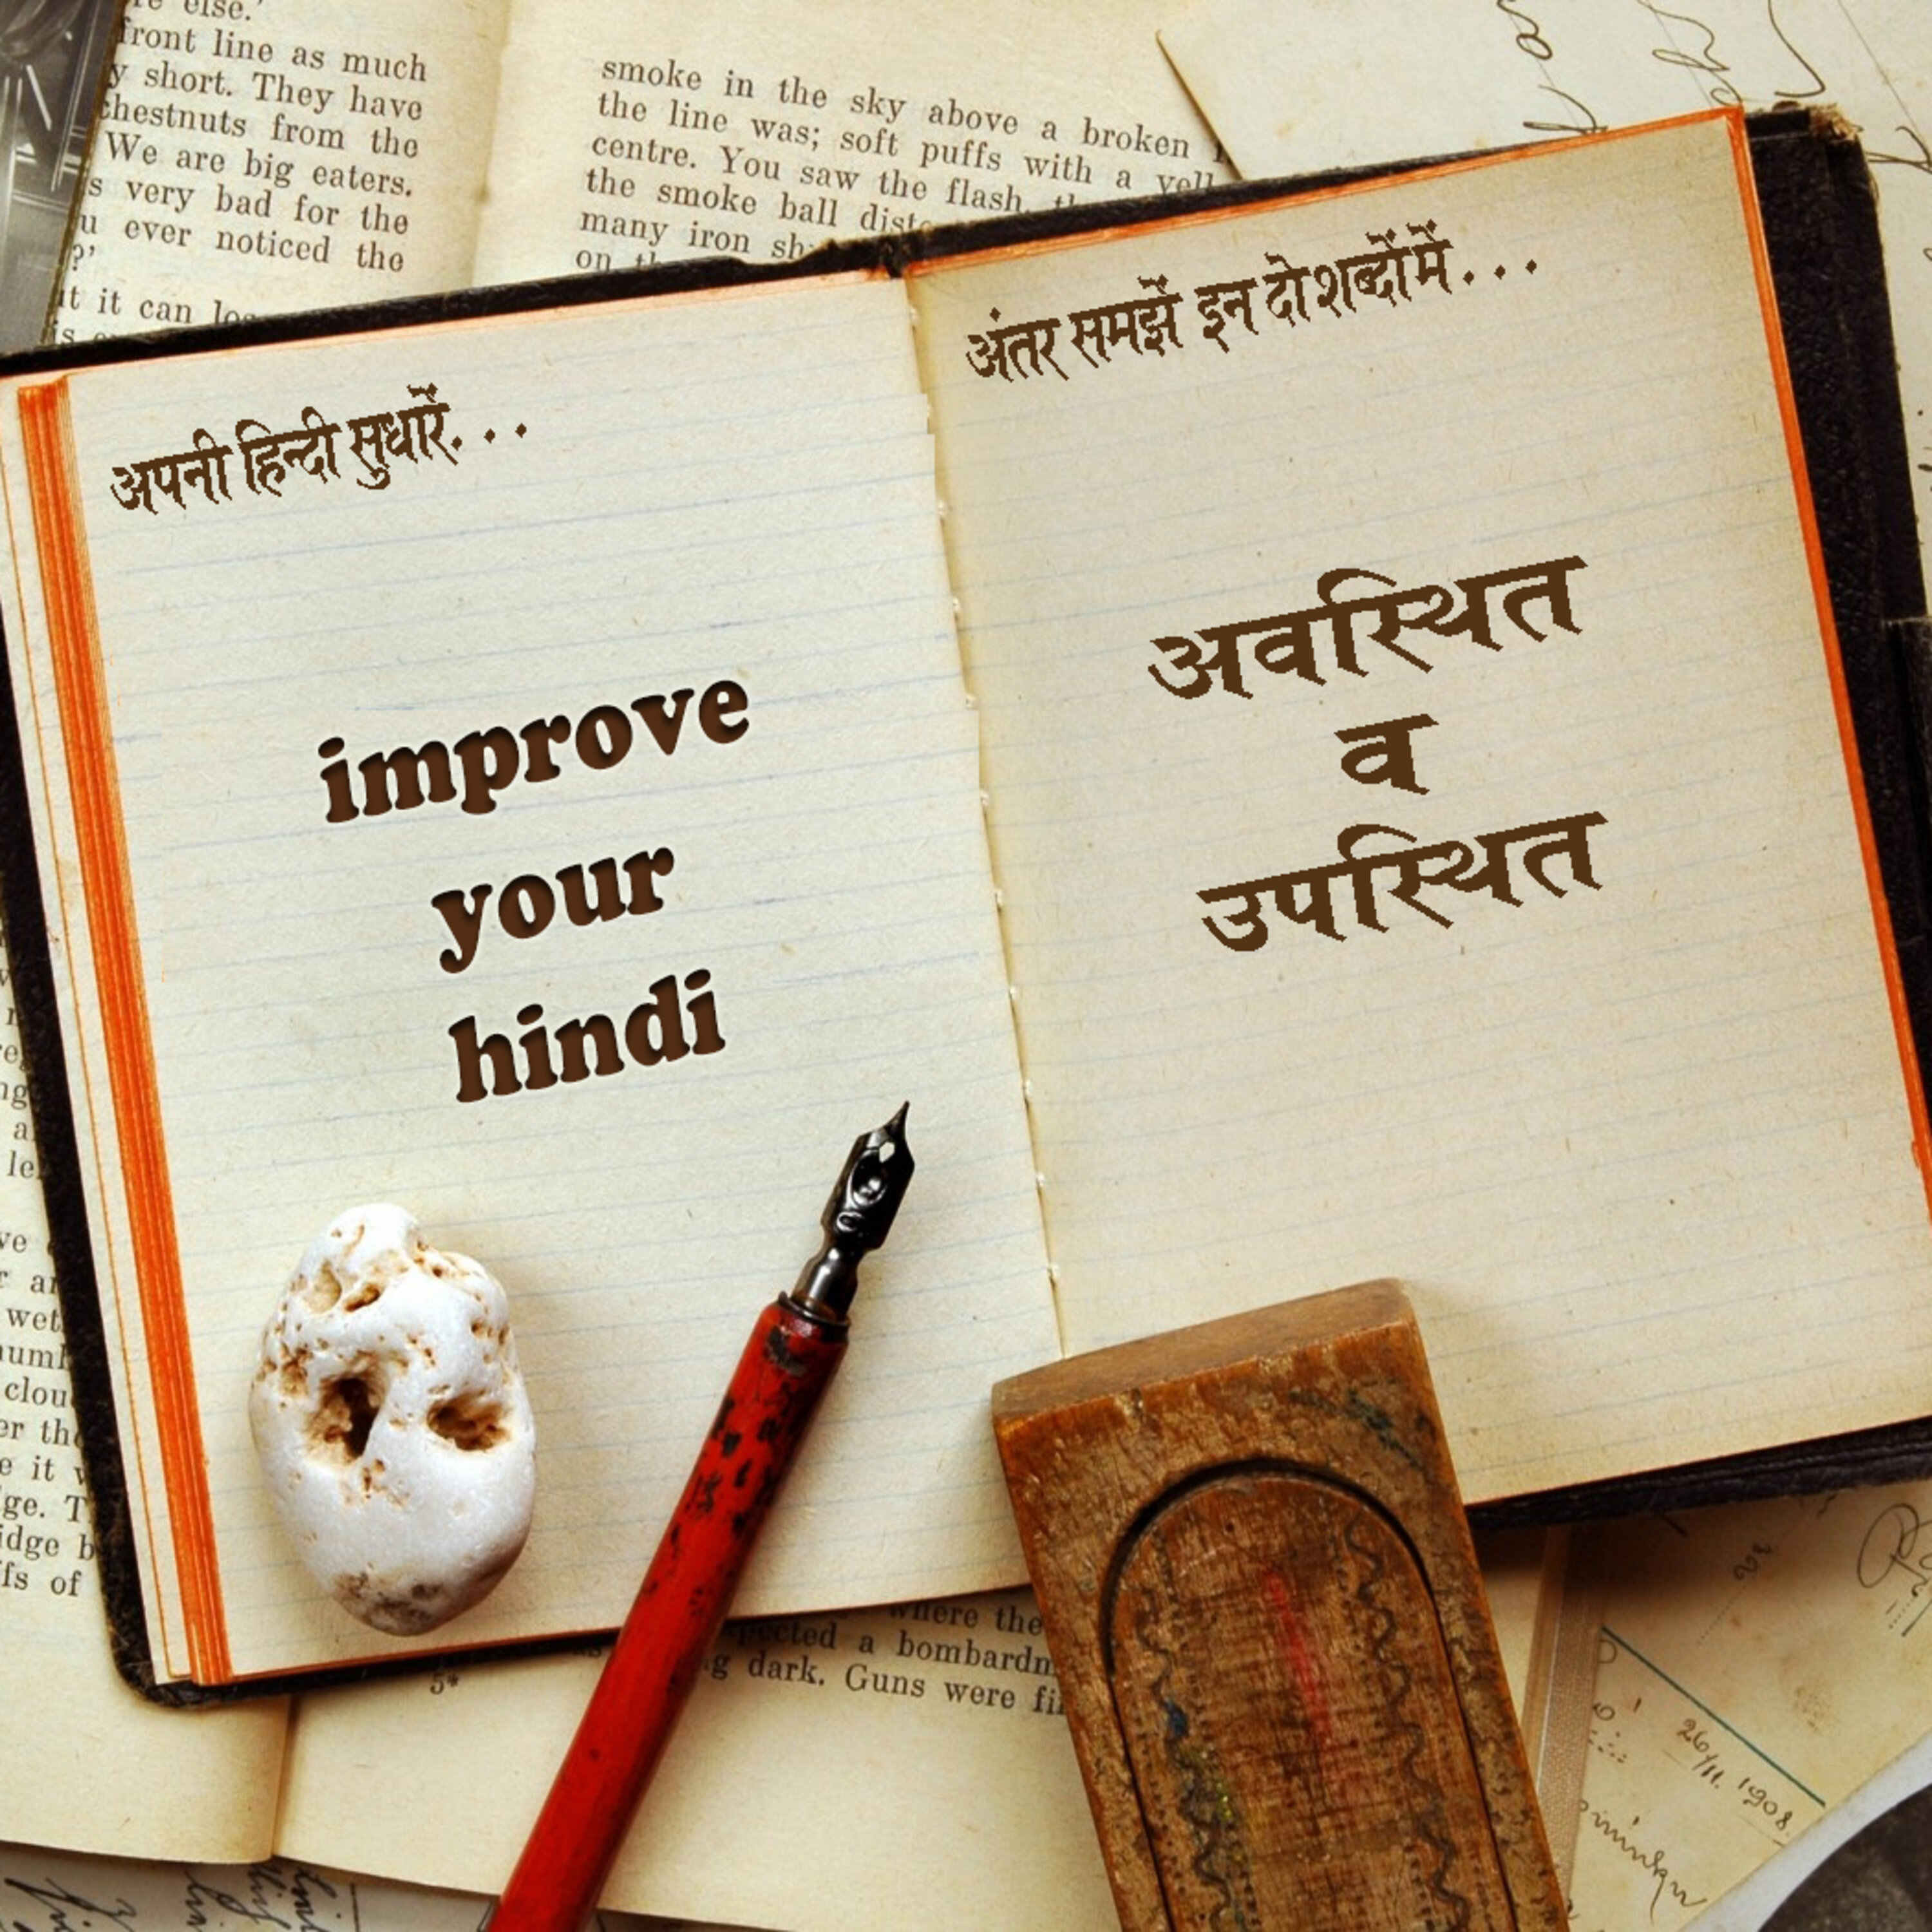 re else.'
front line as much
y short. They have
chestnuts from the
We are big eaters.
s very bad for the
u ever noticed the
?'
it it can
smoke in the sky above a broken
the line was; soft puffs with a
centre. You saw the flash,
the smoke ball
many iron
on
अपनी हिन्दी सुधारें...
improve
your
hindi
अंतर समझें इन दो शब्दों में...
अवस्थित
व
उपस्थित
where the
a bombardm
dark. Guns were
5*
wet
clou
it
ge. T
idge b
fs of
26/11. 1908.